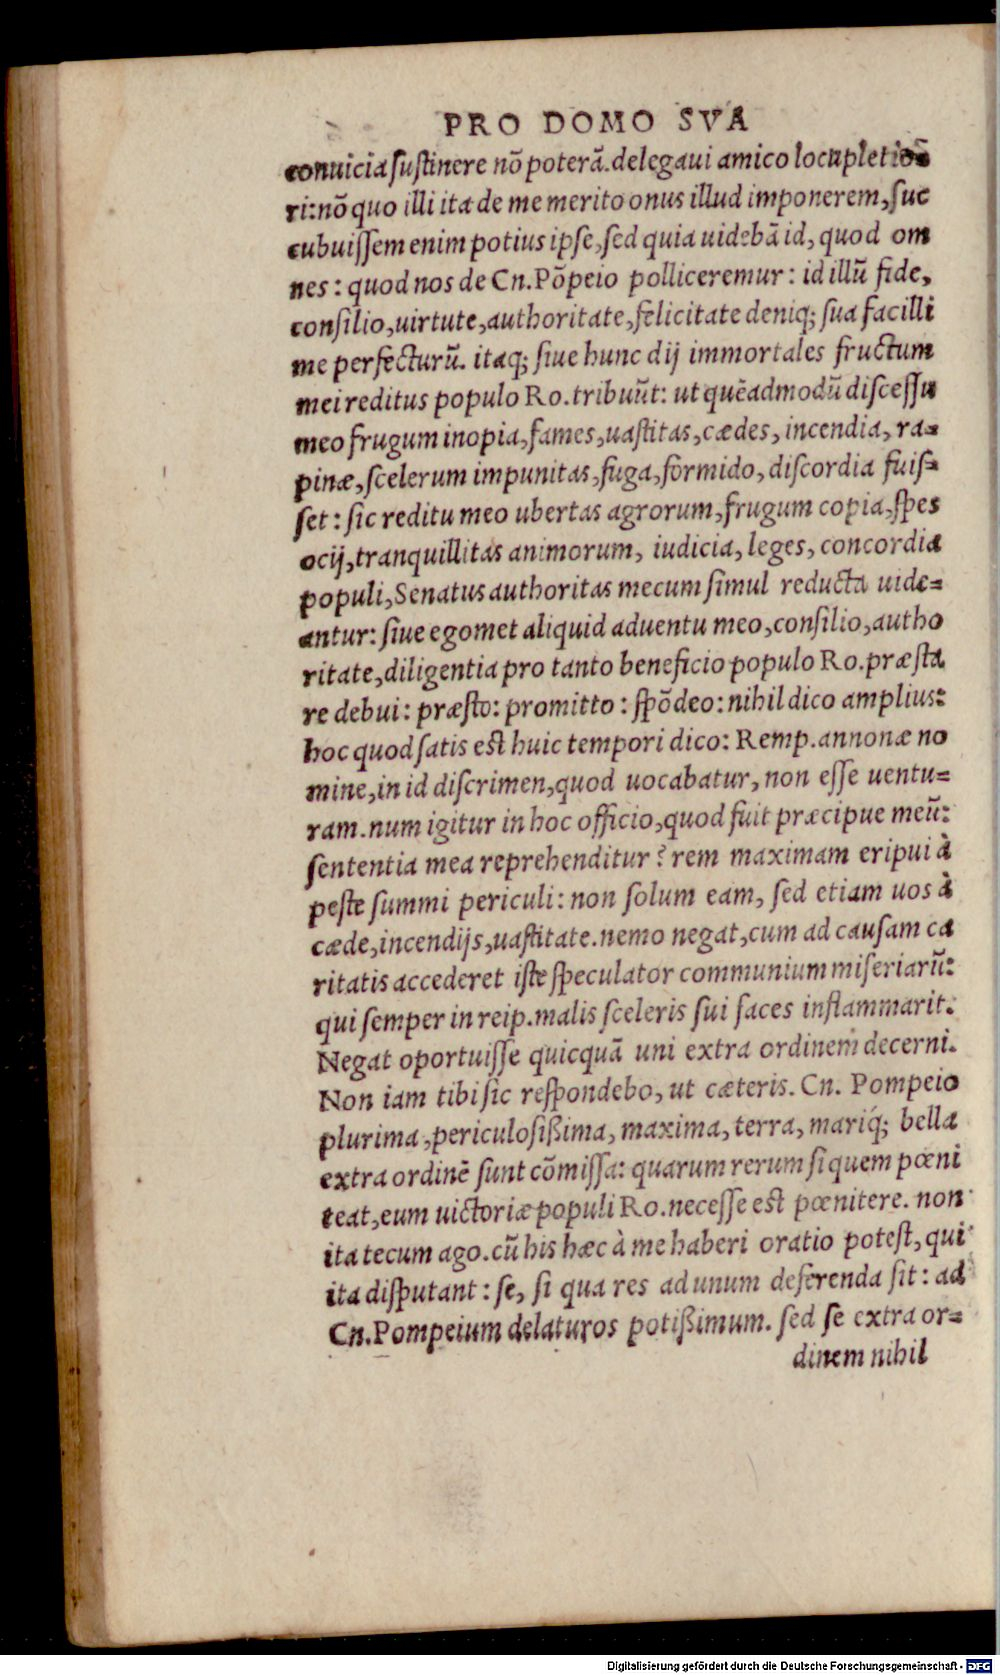 PRO DOMO SVA
conuicia ſuſtinere nõ poterã. delegaui amico locupletio⸗
ri: nõ quo illi ita de me merito onus illud imponerem, ſuc
cubuiſſem enim potius ipſe, ſed quia uidebã id, quod om
nes: quod nos de Cn. Põpeio polliceremur: id illũ fide,
conſilio, uirtute, authoritate, felicitate deniq; ſua facilli
me perfecturũ. itaq; ſiue hunc dij immortales fructum
mei reditus populo Ro. tribuũt: ut quẽadmodũ diſceſſu
meo frugum inopia, fames, uaſtitas, cædes, incendia, ra⸗
pinæ, ſcelerum impunitas, fuga, formido, diſcordia fuiſ⸗
ſet: ſic reditu meo ubertas agrorum, frugum copia, ſpes
ocij, tranquillitas animorum, iudicia, leges, concordia
populi, Senatus authoritas mecum ſimul reducta uide⸗
antur: ſiue egomet aliquid aduentu meo, conſilio, autho
ritate, diligentia pro tanto beneficio populo Ro. præſta
re debui: præſto: promitto: ſpõdeo: nihil dico amplius:
hoc quod ſatis eſt huic tempori dico: Remp. annonæ no
mine, in id diſcrimen, quod uocabatur, non eſſe uentu⸗
ram. num igitur in hoc officio, quod fuit præcipue meũ:
ſententia mea reprehenditur? rem maximam eripui à
peſte ſummi periculi: non ſolum eam, ſed etiam uos à
cæde, incendijs, uaſtitate. nemo negat, cum ad cauſam ca
ritatis accederet iſte ſpeculator communium miſeriarũ:
qui ſemper in reip. malis ſceleris ſui faces inflammarit.
Negat oportuiſſe quicquã uni extra ordinem decerni.
Non iam tibi ſic reſpondebo, ut cæteris. Cn. Pompeio
plurima, periculoſißima, maxima, terra, mariq́; bella
extra ordinẽ ſunt cõmiſſa: quarum rerum ſi quem pœni
teat, eum uictoriæ populi Ro. neceſſe eſt pœnitere. non
ita tecum ago. cũ his hæc à me haberi oratio poteſt, qui
ita diſputant: ſe, ſi qua res ad unum deferenda ſit: ad
Cn. Pompeium delaturos potißimum. ſed ſe extra or⸗
dinem nihil
Digitalisierung gefördert durch die Deutsche Forschungsgemeinschaft - DFG